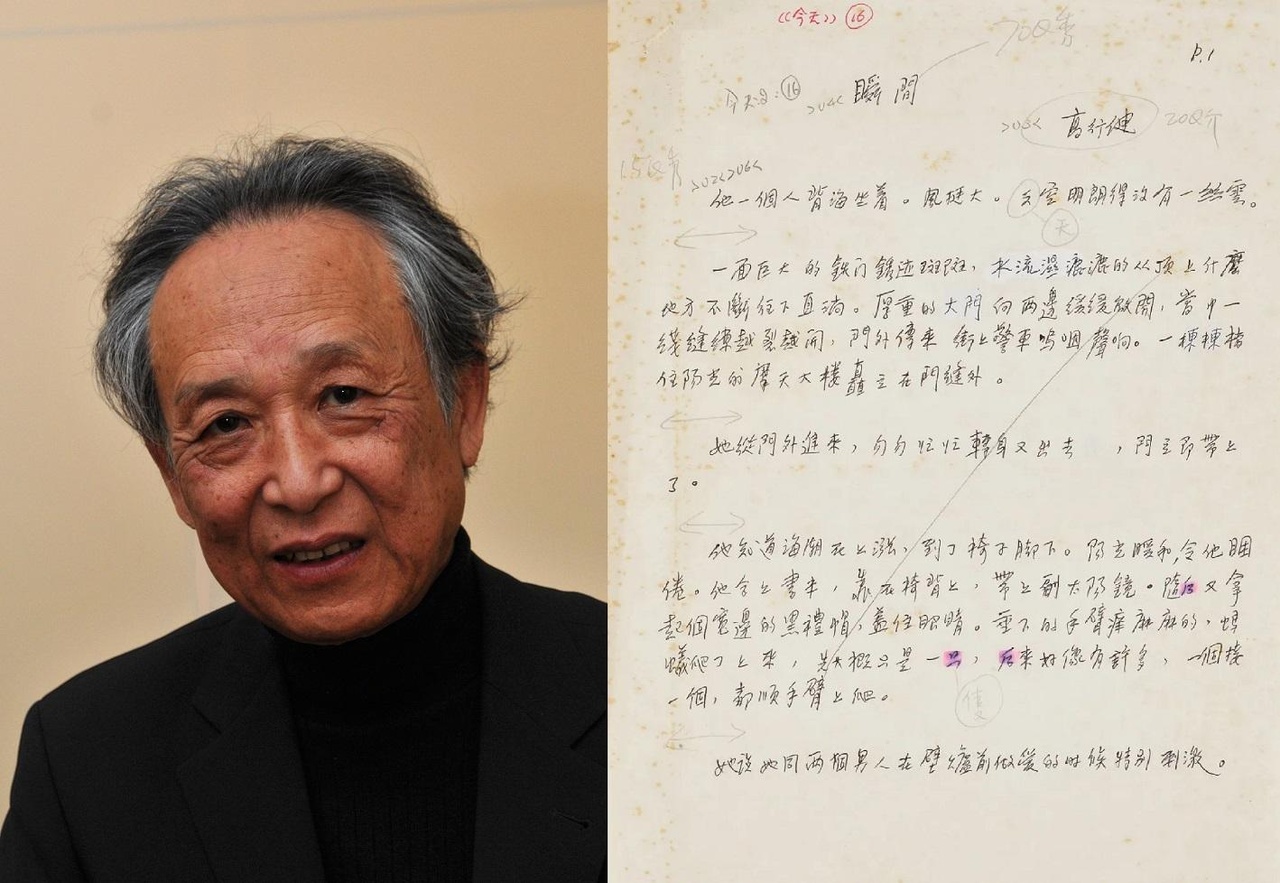 《今天》 16
P.1
今天: 16 瞬間
高行健
他一個人背海坐着。風挺大。天空明朗得沒有一絲雲。
天
一面巨大的鉄门銹迹斑斑，水流濕漉漉的从顶上什麼
地方不斷往下直淌。厚重的大門向两邊缓缓放開，當中一
綫縫縺越裂越開，門外傳來街上警車呜咽聲响。一棟棟擋
住陽光的摩天大楼矗立在門缝外。
她從門外進來，匆匆忙忙轉身又出去，門立即帶上
了。
他知道海潮在上漲，到了椅子脚下。陽光暖和，令他睏
倦。他合上書本，靠在椅背上，帶上副太陽鏡。隨后又拿
起個寬邊的黑禮帽，盖住眼睛。垂下的手臂癢麻麻的，螞
蟻爬了上來，先大概只是一只，后來好像有許多，一個接
一個，都顺手臂上爬。
她説她同两個男人在壁爐前做爱的时候特别刺激。